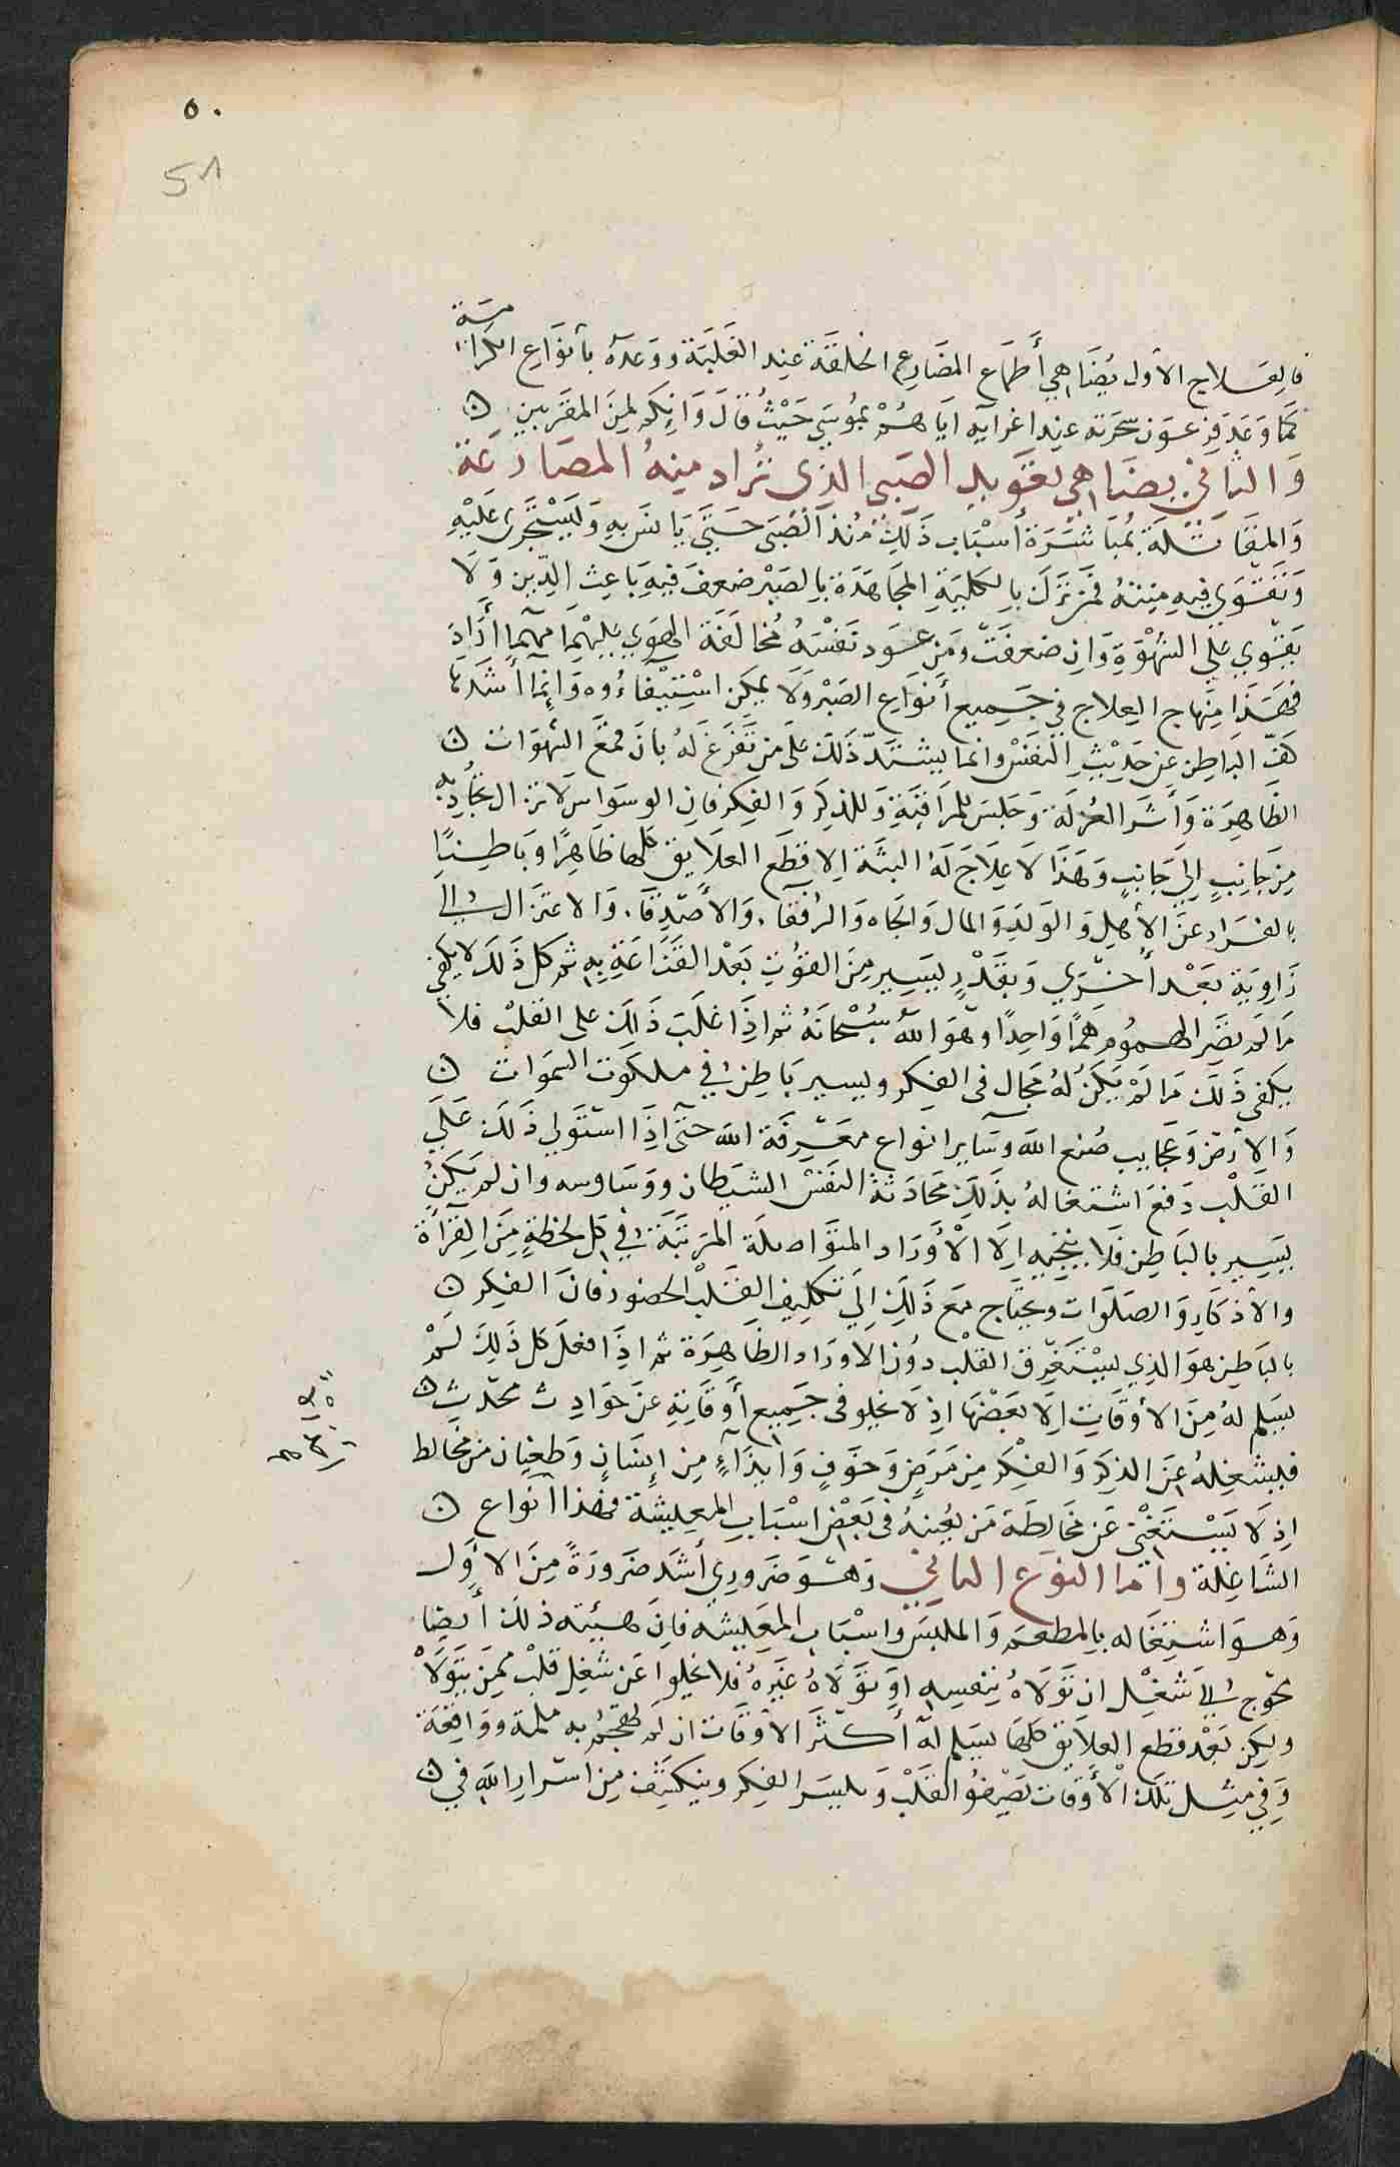 ٥٠
51
فالعلاج الأول يُضاهي أطماع المصارع الخلقة عند الغلبة ووعده بأنواع الكرامة
كما وعد فرعون سحرته عند اغرايه اياهم بموسى حيث قال وانكم لمن المقربين
والثاني يضاهي تعويد الصبي الذي تراد منه المصارعة
والمقاتلة بمباشرة أسباب ذلك منذ الصبى حتى يانس به ويستجري عليه
وتقوي فيه منته فمن ترك بالكلية المجاهدة بالصبر ضعف فيه باعث الدين ولا
يقوي على الشهوة وان ضعفت ومن عود نفسه مخالفة الهوي غلبهما مهما أراد
فهذا منهاج العلاج في جميع أنواع الصبر ولا يمكن استيفاءوه وانما أشدها
كف الباطن عن حديث النفس وانما يشتد ذلك على من تفرغ له بان قمع الشهوات
الظاهرة وأثر العزلة وجلس للمراقبة وللذكر والفكر فان الوسواس لا تزال تجاذبه
من جانب إلى جانب وهذا لا علاج له البتة الا قطع العلايق كلها ظاهرا وباطنا
بالفرار عن الأهل والولد والمال والجاه والرفقا والأصدقا والاعتزال إلى
زاوية بعد أحرى وبقدر يسير من القوت بعد القناعة به ثم كل ذلك لا يكفي
ما لم تصر الهموم هما واحدا وهو الله سبحانه ثم اذا غلب ذلك على القلب فلا
يكفي ذلك ما لم يكن له مجال في الفكر ويسير باطن في ملكوت السموات
والأرض وعجايب صنع الله وساير انواع معرفة الله حتى اذا استولى ذلك على
القلب دفع اشتغاله بذلك محادثة النفس الشيطان ووساوسه وان لم يكن
يسير بالباطن فلا ينجيه إلا الأوراد المتواصلة المرتبة في كل لحظة من القرأة
والأذكار والصلوات ويحتاج مع ذلك إلى تكليف القلب الحضور فان الفكر
بالباطن هو الذي يستغرق القلب دون الاوراد الظاهرة ثم اذا فعل كل ذلك لم
يسلم له من الأوقات إلا بعضها اذ لا يخلو في جميع أوقاته عن حوادث تحدث
فيشغله عن الذكر والفكر من مرض وخوف وايذاء من إنسان وطغيان من مخالط
اذ لا يستغني عن مخالطة من يعينه في بعض اسباب المعيشة فهذا انواع
الشاغلة واما النوع الثاني وهو ضروري أشد ضرورة من الأول
وهو اشتغاله بالمطعم والملبس واسباب المعيشة فان هيئته ذلك أيضا
تحوج إلى شغل ان تولاه بنفسه او تولاه غيره فلا يخلوا عن شغل قلب ممن يتولا
ولكن بعد قطع العلايق كلها يسلم له أكثر الأوقات ان لم تهجم به ملمة وواقعة
وفي مثل تلك الأوقات تصفو القلب وييسر الفكر وينكشف من اسرار الله في